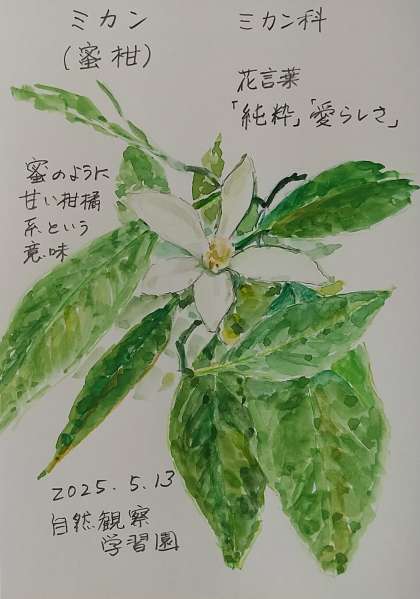 ミカン
(蜜柑)
ミカン科
花言葉
「純粋」「愛らしさ」
蜜のように
甘い柑橘
系という
意味
2025.5.13
自然観察
学習園